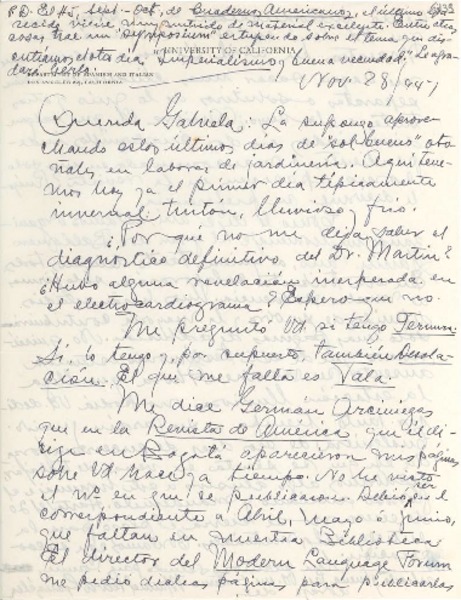 P.D. El No. Sept.-Oct. de Cuadernos Americanos, el último
recido viene muy nutrido de material excelente. Entre otras
cosas trae un "symposium" estupendo sobre el tema que dis-
cutíamos el otro día, "Imperialismo y buena vecindad." Le agra-
dará leerlo.
UNIVERSITY OF CALIFORNIA
DEPARTMENT OF SPANISH AND ITALIAN
LOS ANGELES 24, CALIFORNIA
Nov. 28/947
Querida Gabriela: La supongo aprove-
chando estos últimos días de "sol bueno" oto-
ñales en labores de jardinería. Aquí tene-
mos hoy ya el primer día típicamente
invernal: tristón, lluvioso y frío.
¿Por qué no me deja saber el
diagnóstico definitivo del Dr. Martin?
¿Hubo alguna revelación inesperada en
el electro-cardiograma? Espero que no.
Me preguntó Vd. si tengo Ternura.
Sí, lo tengo y, por supuesto, también Desola-
ción. El que me falta es Tala.
Me dice Germán Arciniegas
que en la Revista de América que él di-
rige en Bogotá aparecieron mis páginas
sobre Vd. hace ya tiempo. No he visto
el nº en que se publicaron. Debió ser en el
correspondiente a Abril, Mayo o Junio,
que faltan en nuestra Biblioteca
El director del Modern Language Forum
me pidió dichas páginas para publicarlas